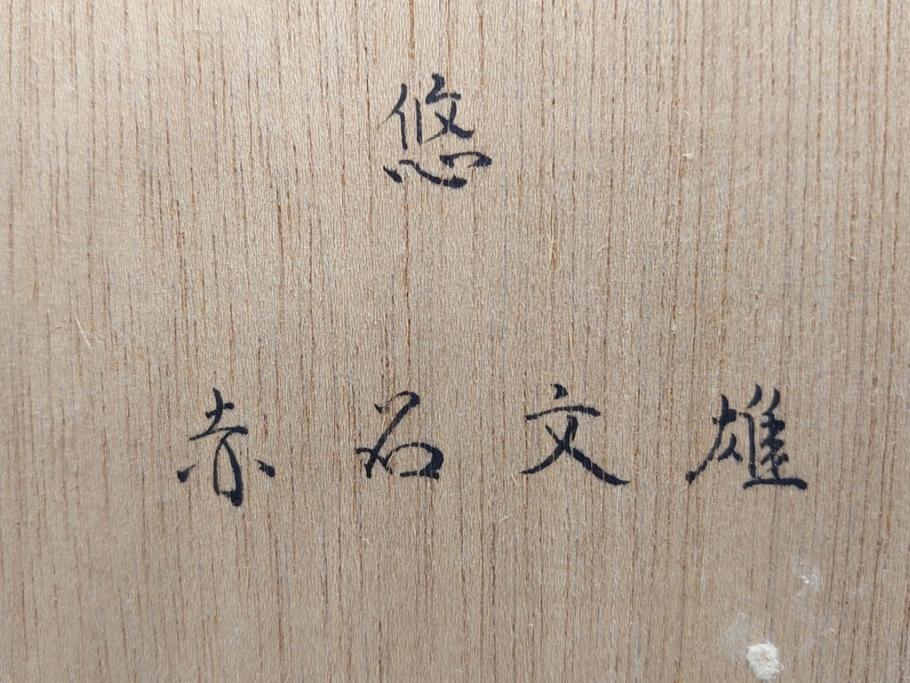 悠
赤石文雄